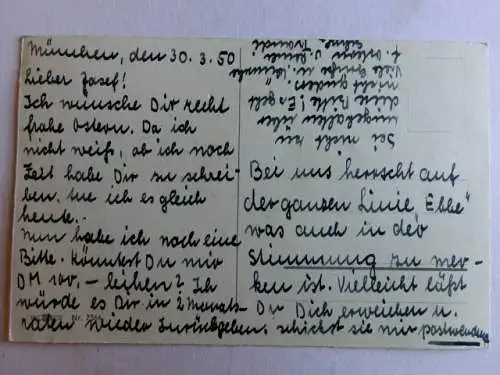 München, den 30.3.50
Lieber Josef!
Ich wünsche Dir recht
frohe Ostern. Da ich
nicht weiß, ob ich noch
Zeit habe Dir zu schrei-
ben, tue ich es gleich
heute.-
Nun habe ich noch eine
Bitte. Könntest Du mir
DM 100.- leihen? Ich
würde es Dir in 2 Monats-
raten wieder zurückgeben.
Nr.
Bei uns herrscht auf
der ganzen Linie „Ebbe"
was auch in der
Stimmung zu mer-
ken ist. Vielleicht läßt
Du Dich erweichen u.
schickst sie mir postwendend
Sei nicht bös
ungehalten über
diese Bitte! Es geht
nicht anders.
Viele Grüße u.